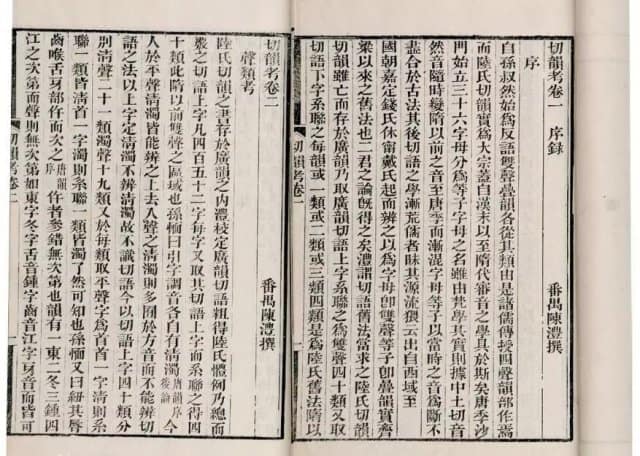 切韻考卷一 序錄
番禺陳澧撰
序
自孫叔然始爲反語雙聲疊韻各從其類由是諸儒傳授四聲韻部作焉
而陸氏切韻實爲大宗蓋自漢末以至隋代審音之學具於斯矣唐季沙
門始立三十六字母分爲等子字母之名雖由梵學其實則據中土切音
然音隨時變隋以前之音至唐季而漸混字母等子以當時之音爲斷不
盡合於古法其後切語之學漸荒儒者昧其源流猥云出自西域至
國朝嘉定錢氏休甯戴氏起而辨之以爲字母卽雙聲等子卽疊韻實齊
梁以來之舊法也二君之論旣得之矣澧謂切語舊法當求之陸氏切韻
切韻雖亡而存於廣韻乃取廣韻切語上字系聯之爲雙聲四十類又取
切語下字系聯之每韻或一類或二類或三類四類是爲陸氏舊法隋以
切韻考卷一
切韻考卷二
番禺陳澧撰
聲類考
陸氏切語之書存於廣韻之內澧校定廣韻切語粗得陸氏體例乃總而
覈之切語上字凡四百五十二字每字又取其切語上字而系聯之得四
十類此隋以前雙聲之區域也孫愐曰引字調音各自有清濁唐韻序後論今
人於平聲清濁皆能辨之上去入聲之清濁則多囿於方音而不能辨切
語之法以上字定清濁不辨清濁故不識切語今以切語上字四十類分
別清聲二十一類濁聲十九類又於每類取平聲字爲首首一字清則系
聯一類皆清首一字濁則系聯一類皆濁了然可知也孫愐又曰紐其脣
齒喉舌牙部仵而次之唐韻序仵者參錯無次第也韻有一東二冬三鍾四
江之次第而聲則無次第如東字冬字舌音鍾字齒音江字牙音而皆可
切韻考卷二